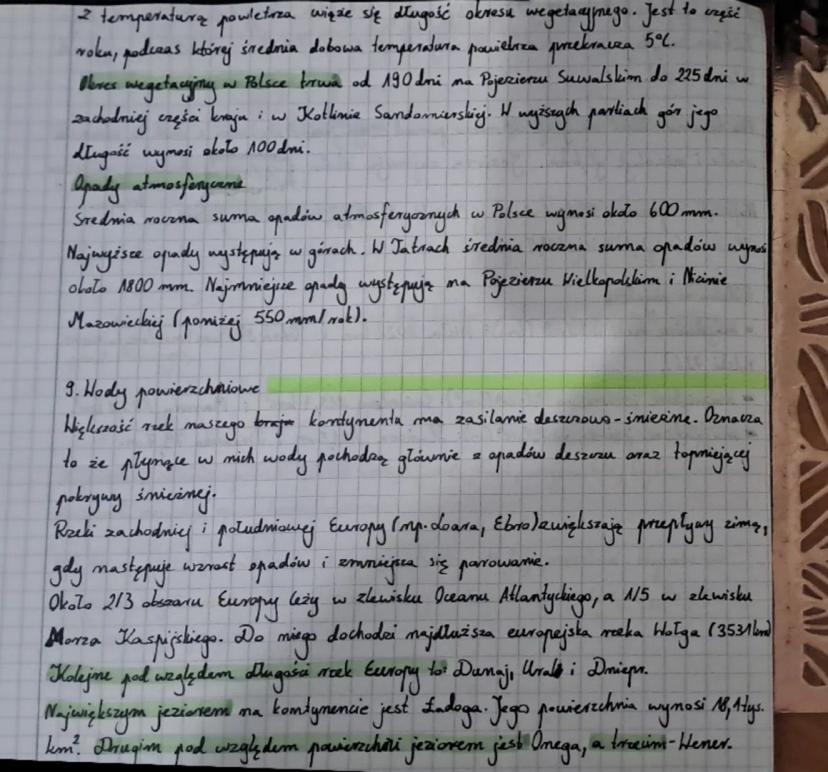 Z temperaturą powietrza wiąże się długość okresu wegetacyjnego. Jest to część
roku, podczas której średnia dobowa temperatura powietrza przekracza 5°C.
Okres wegetacyjny w Polsce trwa od 190 dni na Pojezierzu Suwalskim do 225 dni w
zachodniej części kraju i w Kotlinie Sandomierskiej. W wyższych partiach gór jego
długość wynosi około 100 dni.
Opady atmosferyczne
Średnia roczna suma opadów atmosferycznych w Polsce wynosi około 600 mm.
Najwyższe opady występują w górach. W Tatrach średnia roczna suma opadów wynosi
około 1800 mm. Najmniejsze opady występują na Pojezierzu Wielkopolskim i Nizinie
Mazowieckiej (poniżej 550 mm/rok).
9. Wody powierzchniowe
Większość rzek naszego kraju kontynentu ma zasilanie deszczowo-śnieżne. Oznacza
to że płynące w nich wody pochodzą głównie z opadów deszczu oraz topniejącej
pokrywy śnieżnej.
Rzeki zachodniej i południowej Europy (np. Loara, Ebro) zwiększają przepływy zimą,
gdy następuje wzrost opadów i zmniejsza się parowanie.
Około 2/3 obszaru Europy leży w zlewisku Oceanu Atlantyckiego, a 1/5 w zlewisku
Morza Kaspijskiego. Do niego dochodzi najdłuższa europejska rzeka Wołga (3531 km)
Kolejne pod względem długości rzek Europy to: Dunaj, Ural i Dniepr.
Największym jeziorem na kontynencie jest Ładoga. Jego powierzchnia wynosi 18,1 tys.
km². Drugim pod względem powierzchni jeziorem jest Onega, a trzecim - Wener.